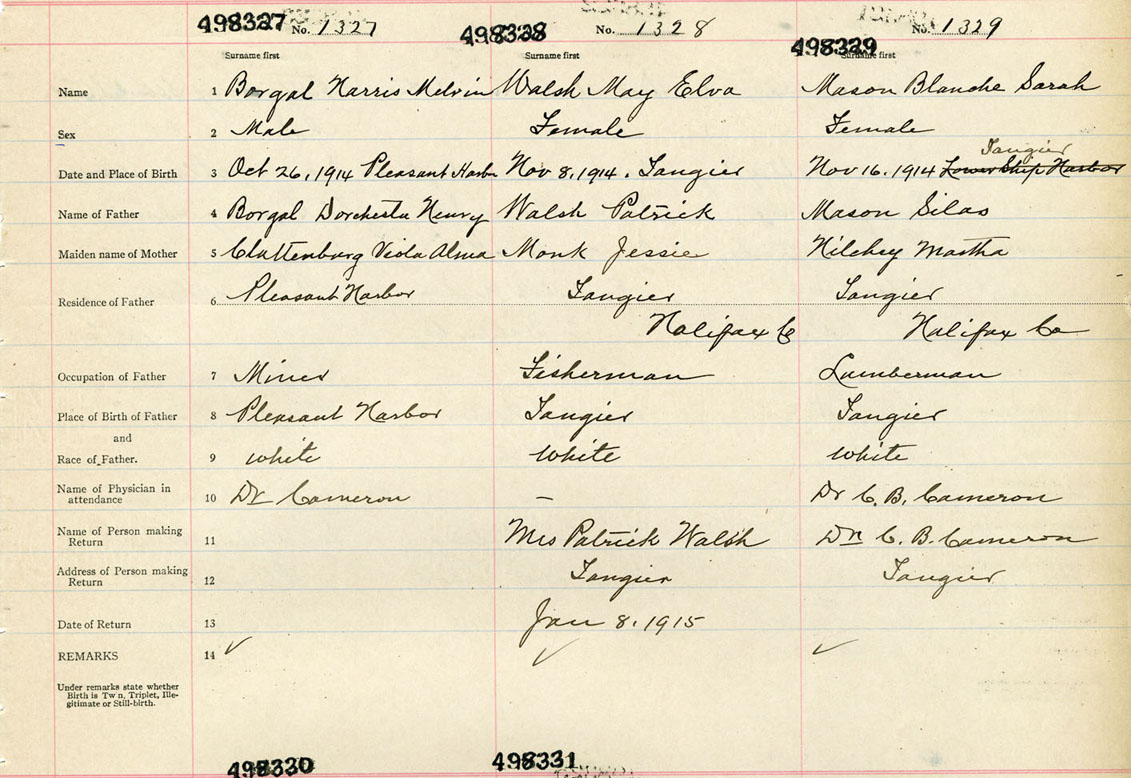 498327 No. 1327 498328 No. 1328 498329 No. 1329
Surname first Surname first Surname first
Name 1 Borgal Harris Melvin Walsh May Elva Mason Blanche Sarah
Sex 2 Male Female Female
Tangier
Date and Place of Birth 3 Oct 26, 1914 Pleasant Harbor Nov 8, 1914. Tangier Nov 16, 1914 Lower Ship Harbor
Name of Father 4 Borgal Dorchesta Henry Walsh Patrick Mason Silas
Maiden name of Mother 5 Cluttenburg Viola Alma Monk Jessie Hilchey Martha
Residence of Father 6 Pleasant Harbor Tangier Tangier
Halifax C Halifax Co
Occupation of Father 7 Miner Fisherman Lumberman
Place of Birth of Father 8 Pleasant Harbor Tangier Tangier
and
Race of Father. 9 white White White
Name of Physician in
attendance 10 Dr Cameron – Dr C. B. Cameron
Name of Person making
Return 11 Mrs Patrick Walsh Dr C. B. Cameron
Address of Person making
Return 12 Tangier Tangier
Date of Return 13 Jan 8, 1915
REMARKS 14 ✓ ✓ ✓
Under remarks state whether
Birth is Tw n, Triplet, Ille-
gitimate or Still-birth.
498330 498331